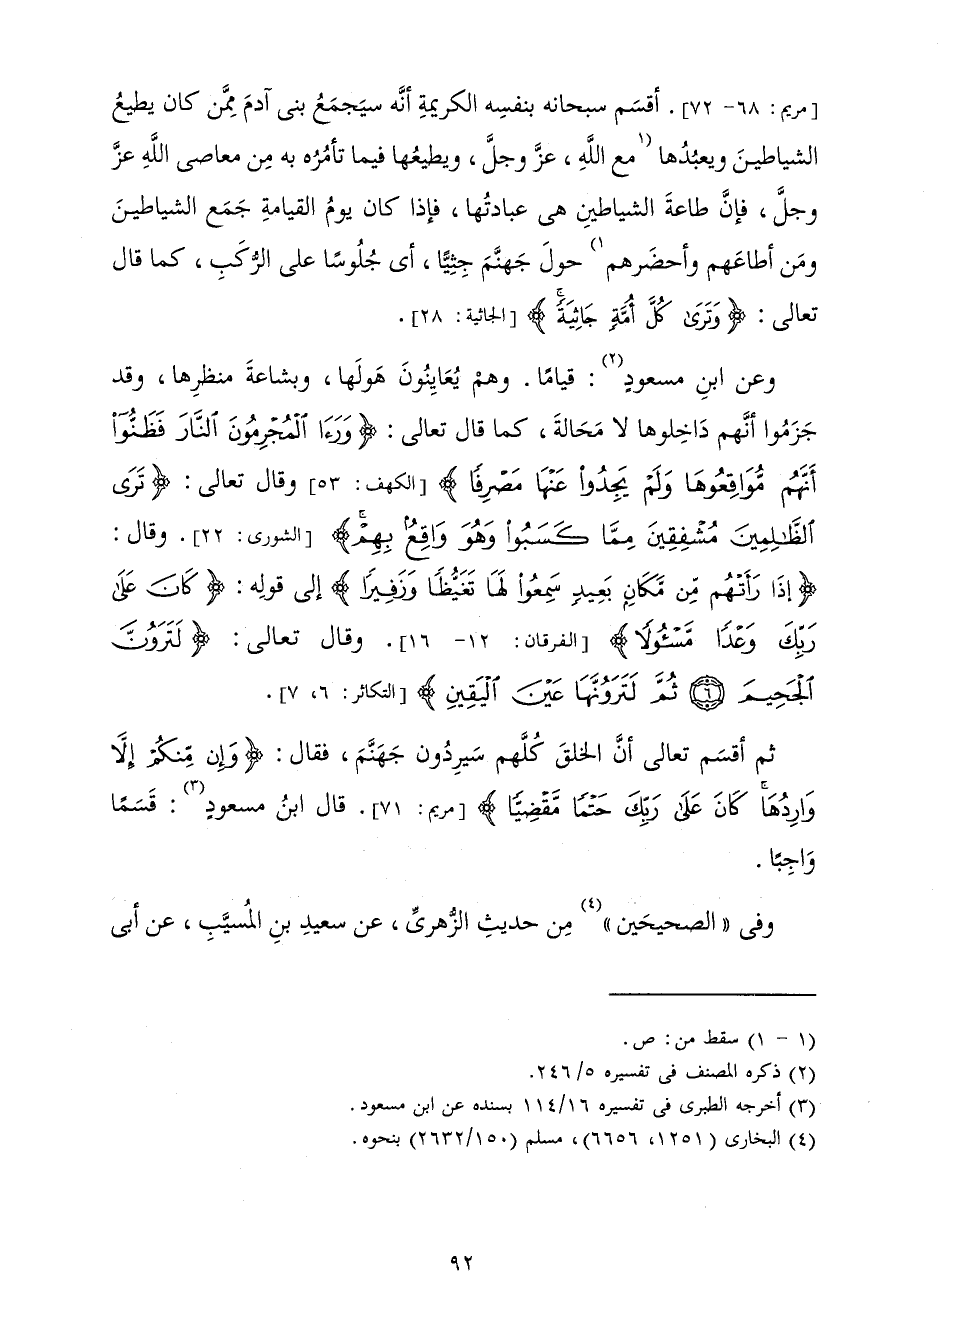 [مريم: ٦٨- ٧٢]. أقسَم سبحانه بنفسِه الكريمةِ أنَّه سيَجمَعُ بنى آدمَ مِمَّن كان يطيعُ
الشياطينَ ويعبُدُها (١ مع اللَّهِ، عزَّ وجلَّ، ويطيعُها فيما تأمُرُه به مِن معاصى اللَّهِ عزَّ
وجلَّ، فإنَّ طاعةَ الشياطينِ هى عبادتُها، فإذا كان يومُ القيامةِ جَمَع الشياطينَ
ومَن أطاعَهم وأحضَرهم ١) حولَ جَهنَّمَ جِثِيًّا، أى جُلُوسًا على الرُّكَبِ، كما قال
تعالى: ﴿ وَتَرَىٰ كُلَّ أُمَّةٍ جَاثِيَةً ۚ ﴾ [الجاثية: ٢٨].
وعن ابنِ مسعودٍ (٢): قيامًا. وهمْ يُعَايِنُونَ هَولَها، وبشاعةَ منظرِها، وقد
جَزَمُوا أنَّهم دَاخِلوها لا مَحَالةَ، كما قال تعالى: ﴿ وَرَءَا ٱلْمُجْرِمُونَ ٱلنَّارَ فَظَنُّوٓا۟
أَنَّهُم مُّوَاقِعُوهَا وَلَمْ يَجِدُوا۟ عَنْهَا مَصْرِفًا ﴾ [الكهف: ٥٣] وقال تعالى: ﴿ تَرَى
ٱلظَّـٰلِمِينَ مُشْفِقِينَ مِمَّا كَسَبُوا۟ وَهُوَ وَاقِعٌۢ بِهِمْ ۗ ﴾ [الشورى: ٢٢]. وقال:
﴿ إِذَا رَأَتْهُم مِّن مَّكَانٍۭ بَعِيدٍ سَمِعُوا۟ لَهَا تَغَيُّظًا وَزَفِيرًا ﴾ إلى قولِه: ﴿ كَانَ عَلَىٰ
رَبِّكَ وَعْدًا مَّسْـُٔولًا ﴾ [الفرقان: ١٢- ١٦]. وقال تعالى: ﴿ لَتَرَوُنَّ
ٱلْجَحِيمَ ۝٦ ثُمَّ لَتَرَوُنَّهَا عَيْنَ ٱلْيَقِينِ ﴾ [التكاثر: ٦، ٧].
ثم أقسَم تعالى أنَّ الخلقَ كُلَّهم سَيرِدُون جَهنَّمَ، فقال: ﴿ وَإِن مِّنكُمْ إِلَّا
وَارِدُهَا ۚ كَانَ عَلَىٰ رَبِّكَ حَتْمًا مَّقْضِيًّا ﴾ [مريم: ٧١]. قال ابنُ مسعودٍ (٣): قَسَمًا
وَاجِبًا.
وفى «الصحيحَين» (٤) مِن حديثِ الزُّهرىِّ، عن سعيدِ بنِ المُسيَّبِ، عن أبى
(١ - ١) سقط من: ص.
(٢) ذكره المصنف فى تفسيره ٥/ ٢٤٦.
(٣) أخرجه الطبرى فى تفسيره ١٦/ ١١٤ بسنده عن ابن مسعود.
(٤) البخارى (١٢٥١، ٦٦٥٦)، مسلم (١٥٠/ ٢٦٣٢) بنحوه.
٩٢